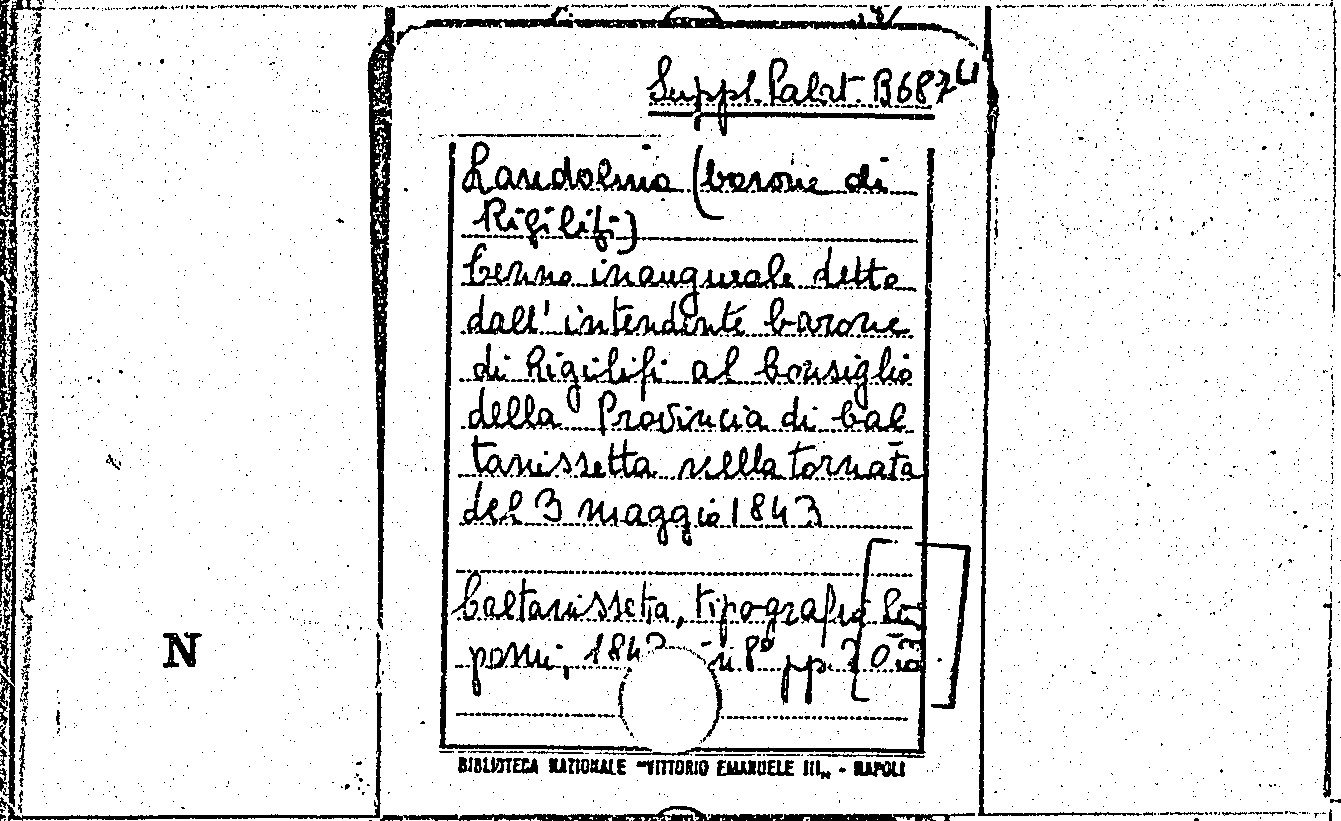 Suppl. Palat. B687
Landolina (barone di
Rigilifi)
Cenno inaugurale detto
dall'intendente barone
di Rigilifi al Consiglio
della Provincia di Cal
tanissetta nella tornata
del 3 maggio 1843
Caltanissetta, tipografia
1843 in 8º pp.
N
BIBLIOTECA NAZIONALE "VITTORIO EMANUELE III" - NAPOLI